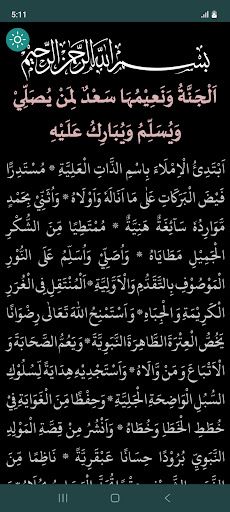 5:11
بِسْمِ اللهِ الرَّحْمٰنِ الرَّحِيْمِ
اَلْجَنَّةُ وَنَعِيْمُهَا سَعْدٌ لِمَنْ يُصَلِّيْ
وَيُسَلِّمُ وَيُبَارِكُ عَلَيْهِ
اَبْتَدِئُ الْإِمْلَاءَ بِاسْمِ الذَّاتِ الْعَلِيَّةِ * مُسْتَدِرًّا
فَيْضَ الْبَرَكَاتِ عَلٰى مَا اَنَالَهُ وَاَوْلَاهُ * وَاُثَنِّيْ بِحَمْدٍ
مَوَارِدُهُ سَآئِغَةٌ هَنِيَّةٌ * مُمْتَطِيًا مِنَ الشُّكْرِ
الْجَمِيْلِ مَطَايَاهُ * وَاُصَلِّيْ وَاُسَلِّمُ عَلَى النُّوْرِ
الْمَوْصُوْفِ بِالتَّقَدُّمِ وَالْاَوَّلِيَّةِ * اَلْمُنْتَقِلِ فِي الْغُرَرِ
الْكَرِيْمَةِ وَالْجِبَاهِ * وَاَسْتَمْنِحُ اللهَ تَعَالٰى رِضْوَانًا
يَخُصُّ الْعِتْرَةَ الطَّاهِرَةَ النَّبَوِيَّةَ * وَيَعُمُّ الصَّحَابَةَ وَ
الْاَتْبَاعَ وَ مَنْ وَّالَاهُ * وَاَسْتَجْدِيْهِ هِدَايَةً لِسُلُوْكِ
السُّبُلِ الْوَاضِحَةِ الْجَلِيَّةِ * وَحِفْظًا مِنَ الْغَوَايَةِ فِيْ
خِطَطِ الْخَطَإِ وَخُطَاهُ * وَاَنْشُرُ مِنْ قِصَّةِ الْمَوْلِدِ
النَّبَوِيِّ بُرُوْدًا حِسَانًا عَبْقَرِيَّةً * نَاظِمًا مِنَ